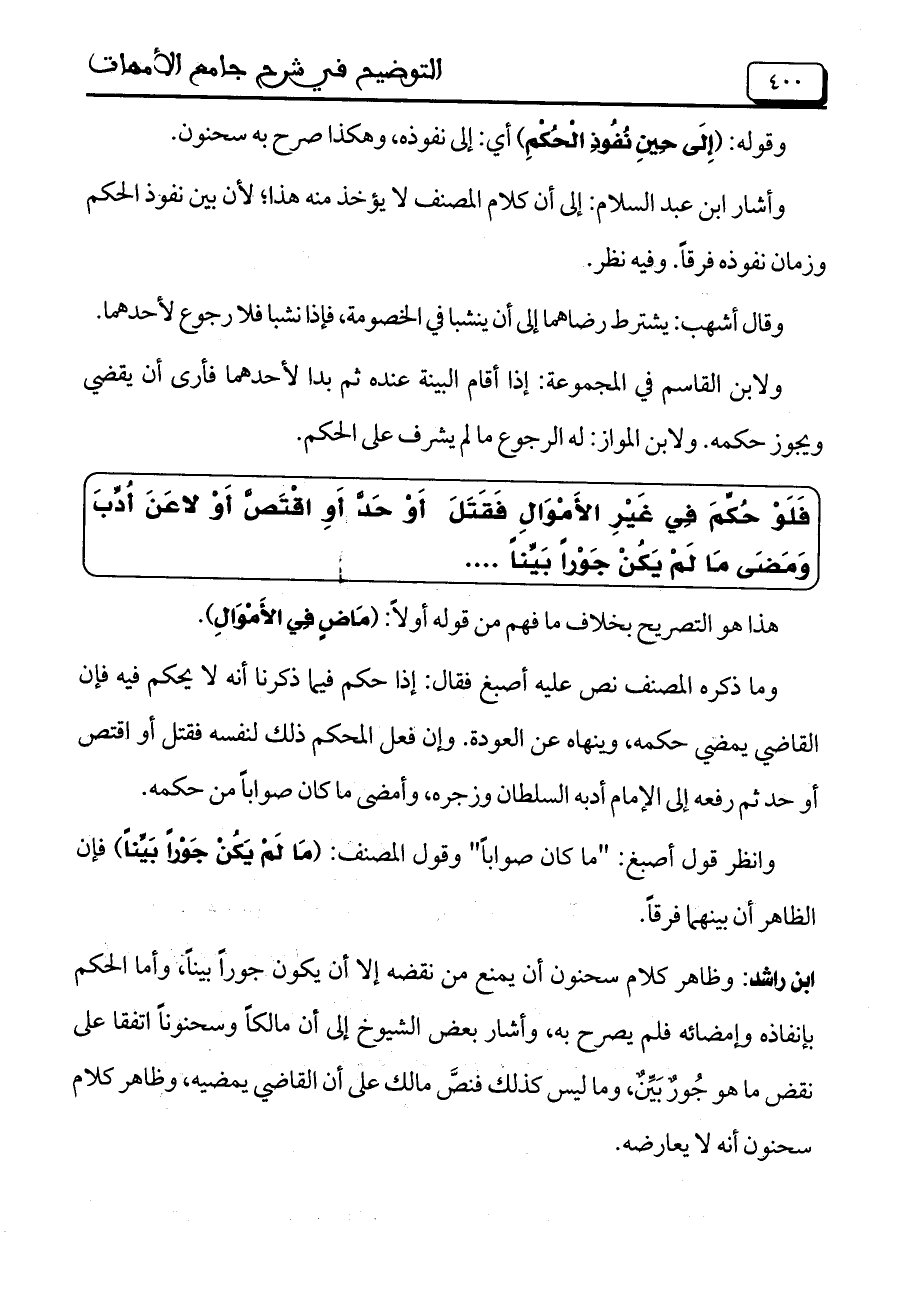 ٤٠٠
التوضيح في شرح جامع الأمهات
وقوله: (إِلَى حِينِ نُفُوذِ الْحُكْمِ) أي: إلى نفوذه، وهكذا صرح به سحنون.
وأشار ابن عبد السلام: إلى أن كلام المصنف لا يؤخذ منه هذا؛ لأن بين نفوذ الحكم
وزمان نفوذه فرقاً. وفيه نظر.
وقال أشهب: يشترط رضاهما إلى أن ينشبا في الخصومة، فإذا نشبا فلا رجوع لأحدهما.
ولابن القاسم في المجموعة: إذا أقام البينة عنده ثم بدا لأحدهما فأرى أن يقضي
ويجوز حكمه. ولابن المواز: له الرجوع ما لم يشرف على الحكم.
فَلَوْ حُكِّمَ فِي غَيْرِ الأَمْوَالِ فَقَتَلَ أَوْ حَدَّ أَوِ اقْتَصَّ أَوْ لاعَنَ أُدِّبَ
وَمَضَى مَا لَمْ يَكُنْ جَوْراً بَيِّناً ....
هذا هو التصريح بخلاف ما فهم من قوله أولاً: (مَاضٍ فِي الأَمْوَالِ).
وما ذكره المصنف نص عليه أصبغ فقال: إذا حكم فيما ذكرنا أنه لا يحكم فيه فإن
القاضي يمضي حكمه، وينهاه عن العودة. وإن فعل المحكم ذلك لنفسه فقتل أو اقتص
أو حد ثم رفعه إلى الإمام أدبه السلطان وزجره، وأمضى ما كان صواباً من حكمه.
وانظر قول أصبغ: "ما كان صواباً" وقول المصنف: (مَا لَمْ يَكُنْ جَوْراً بَيِّناً) فإن
الظاهر أن بينهما فرقاً.
ابن راشد: وظاهر كلام سحنون أن يمنع من نقضه إلا أن يكون جوراً بيناً، وأما الحكم
بإنفاذه وإمضائه فلم يصرح به، وأشار بعض الشيوخ إلى أن مالكاً وسحنوناً اتفقا على
نقض ما هو جُورٌ بَيِّنٌ، وما ليس كذلك فنصَّ مالك على أن القاضي يمضيه، وظاهر كلام
سحنون أنه لا يعارضه.